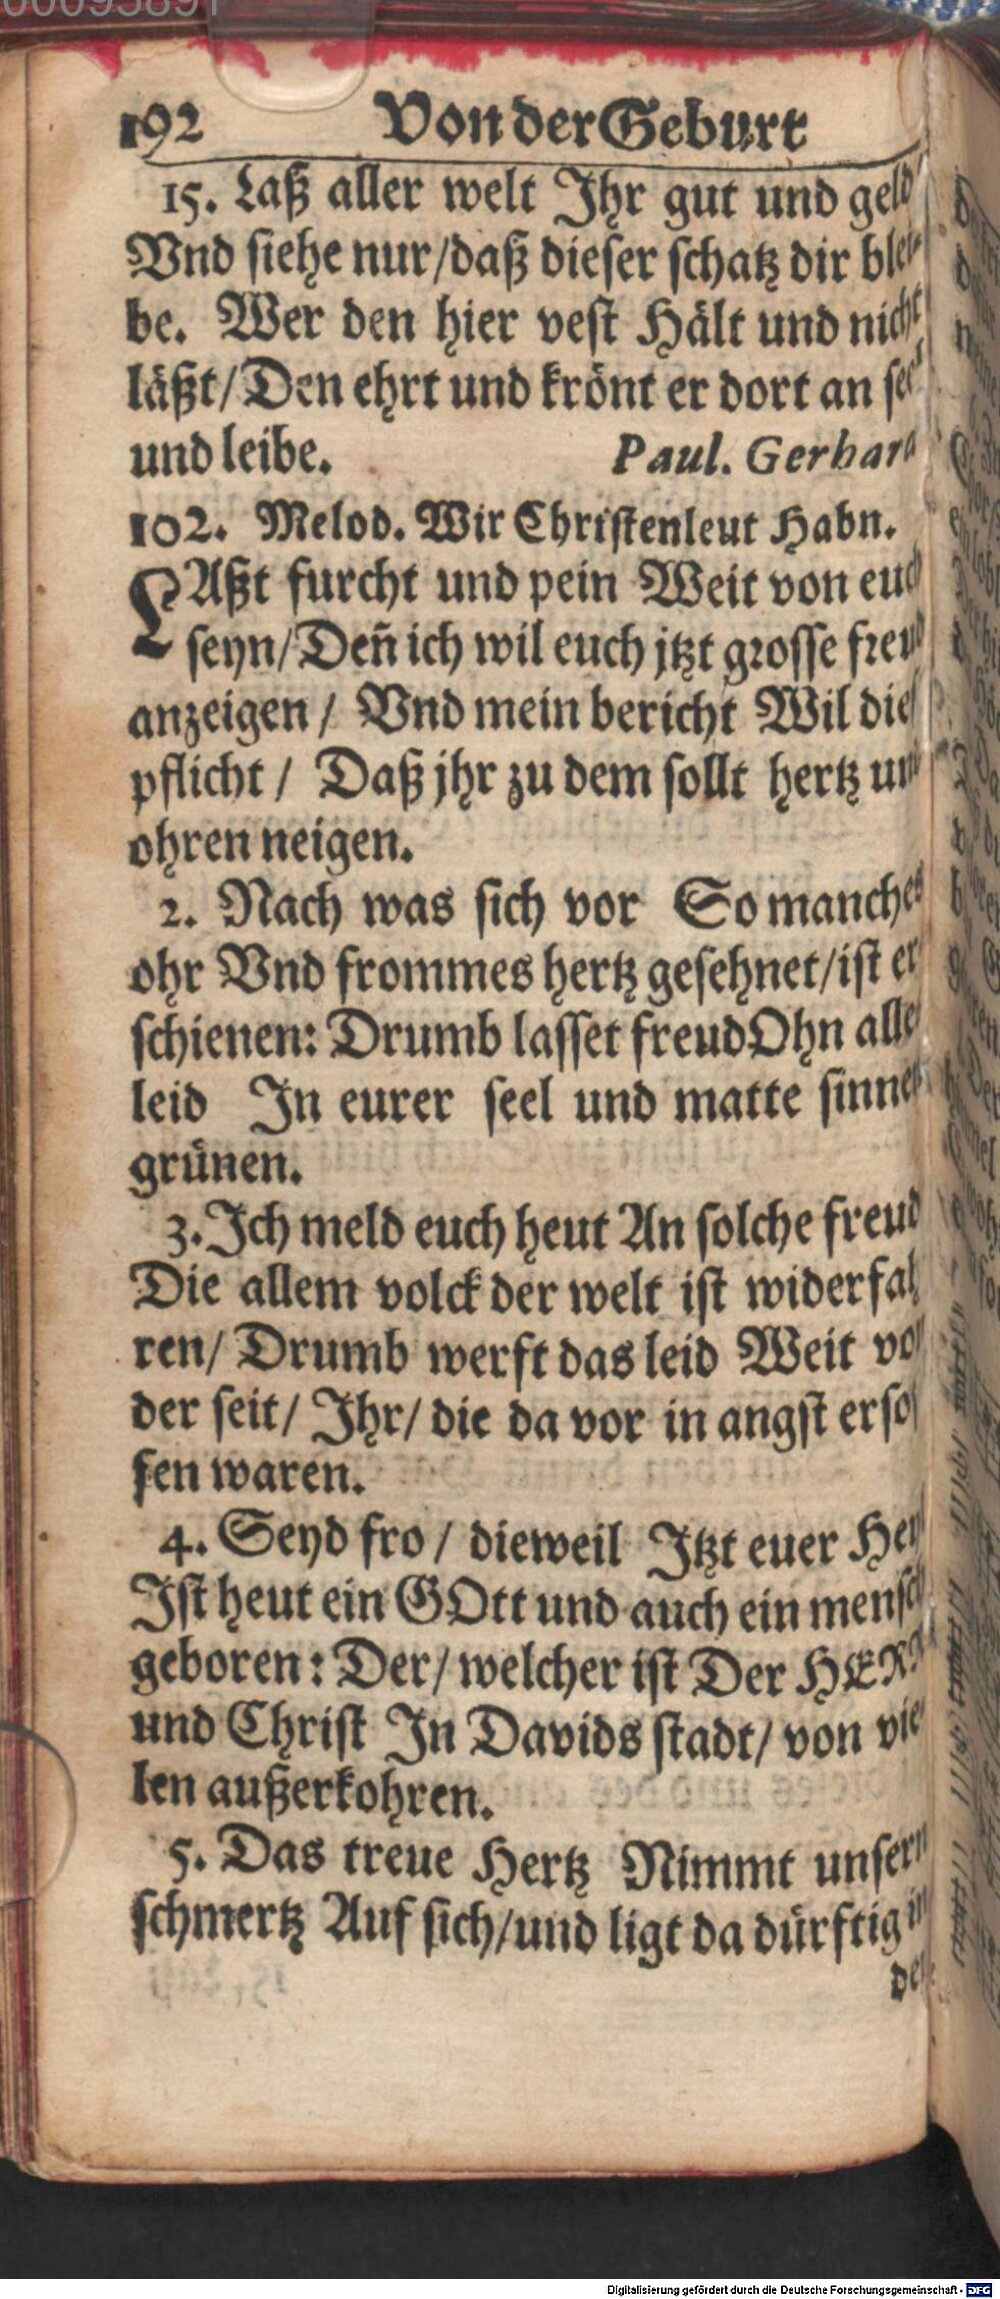 00095891
192 Von der Geburt
15. Laß aller welt Ihr gut und geld
Vnd siehe nur/daß dieser schatz dir blei-
be. Wer den hier vest Hält und nicht
läßt/Den ehrt und krönt er dort an seel
und leibe. Paul. Gerhard
102. Melod. Wir Christenleut Habn.
LAßt furcht und pein Weit von euch
seyn/Deñ ich wil euch jtzt grosse freud
anzeigen/ Vnd mein bericht Wil die
pflicht/ Daß jhr zu dem sollt hertz und
ohren neigen.
2. Nach was sich vor So manches
ohr Vnd frommes hertz gesehnet/ist er
schienen: Drumb lasset freud Ohn alles
leid In eurer seel und matte sinnen
grünen.
3. Ich meld euch heut An solche freud
Die allem volck der welt ist widerfah
ren/ Drumb werft das leid Weit von
der seit/ Ihr/ die da vor in angst ersof
fen waren.
4. Seyd fro/ dieweil Itzt euer Heyl
Ist heut ein GOtt und auch ein mensch
geboren: Der/ welcher ist Der HERR
und Christ In Davids stadt/ von vie
len außerkohren.
5. Das treue Hertz Nimmt unsern
schmertz Auf sich/und ligt da dürftig in
der
Digitalisierung gefördert durch die Deutsche Forschungsgemeinschaft - DFG